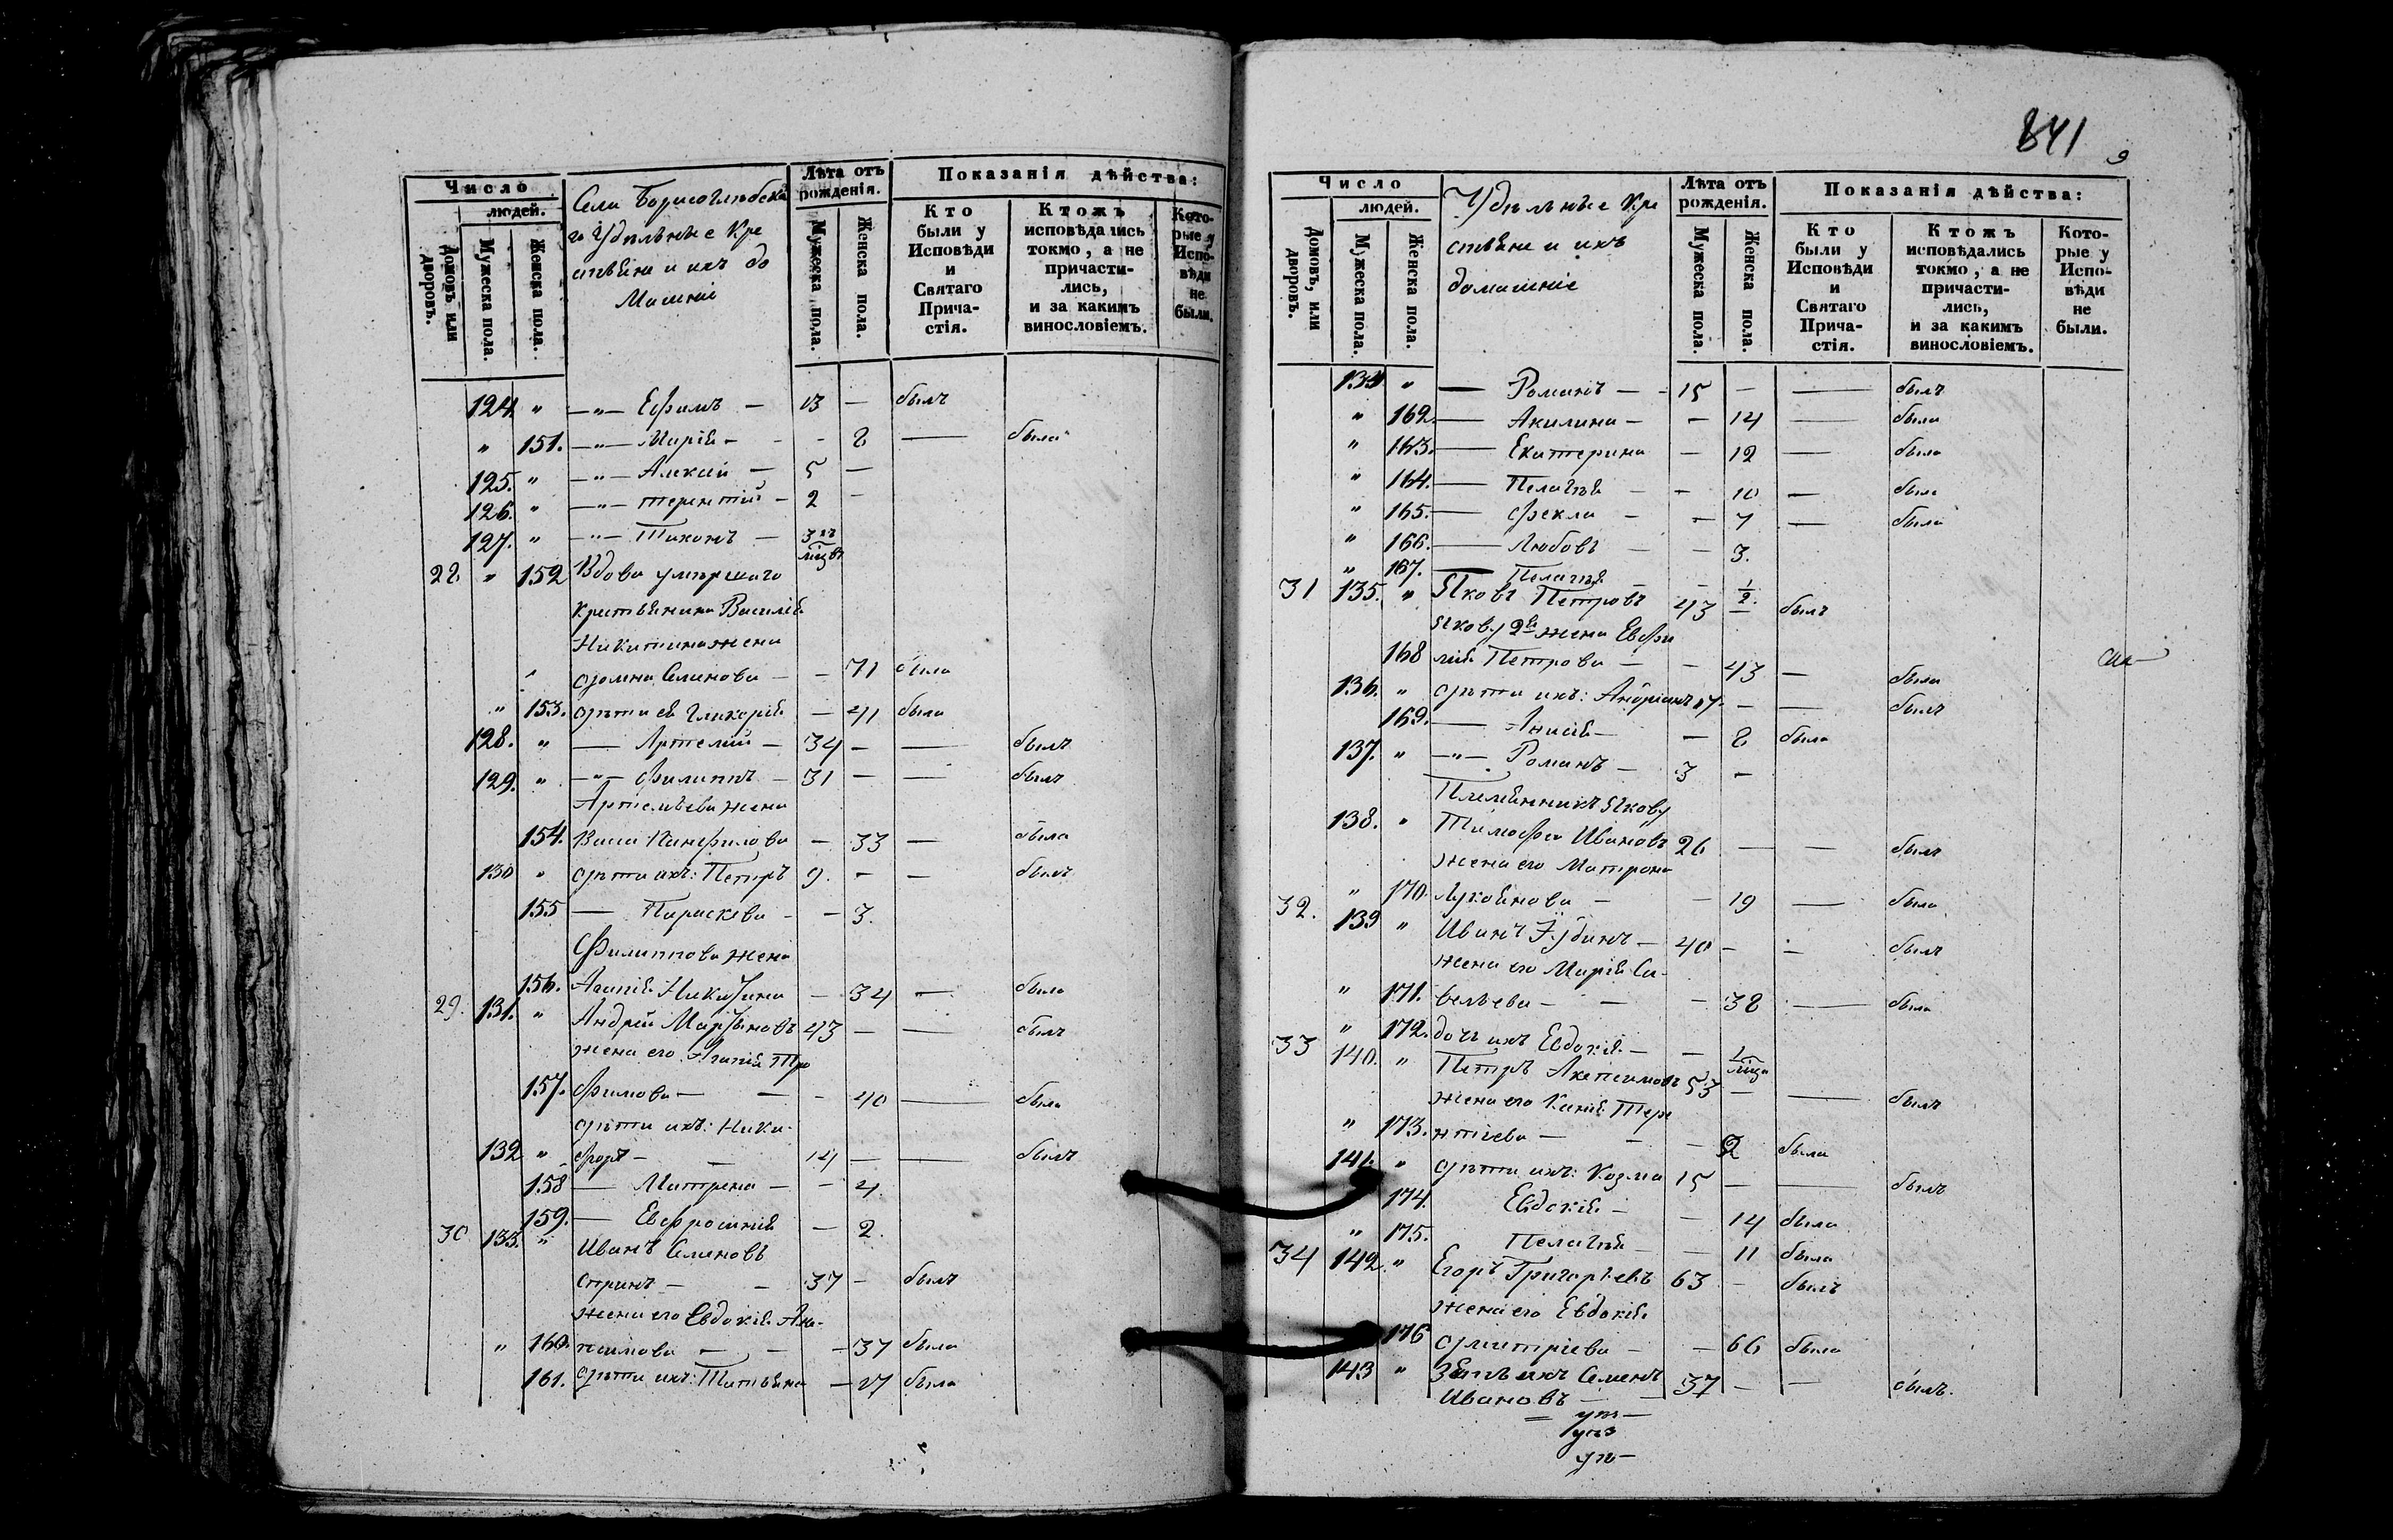 Число
людей.
Домовъ или дворовъ.
Мужеска пола.
Женска пола.
Села Борисоглѣбска
го Удѣльные Кре
стьяне и ихъ до
машніе
Лѣта отъ рожденія.
Мужеска пола.
Женска пола.
Показанія дѣйства:
Кто были у Исповѣди и Святаго Прича- стія.
Ктожъ исповѣдались токмо, а не причасти- лись, и за какимъ винословіемъ.
Кото- рые у Испо- вѣди не были.
124 " —"— Ефимъ — 13 — былъ
" 151. —"— Марія — - 8 — была
125. " —"— Алексій — 5 —
126. " —"— Терентій — 2 -
127. " —"— Тихонъ — 3хъ
мѣцвъ
28. " 152 Вдова умершаго
крестьянина Василія
Никитина жена
" Домна Семенова — - 71 была
" 153. Дѣти ея Гликерія — 41 была
128. " — Артемій — 34 — — былъ
129. " —"— Филиппъ — 31 — — былъ
Артемьева жена
154. Васса Панфилова — 33 — была
130 " Дѣти ихъ: Петръ 9. — — былъ
155 — Параскева - — 3.
Филиппова жена
156. Агапія Никитина — 34 — была
29. 131. " Андрей Мартыновъ 43 — — былъ
жена его Агапія Тро
157. фимова — — - 40 — была
Дѣти ихъ: Ники-
132 " форъ — — 14 — — былъ
158 — Матрена — - 4.
159. — Евфросинія — 2.
30 133. " Иванъ Семеновъ
— — 37 — былъ
жена его Евдокія
" 160. — - — 37 была
161. Дѣти ихъ: Татьяна — 17 была
841
9
Число
людей.
Домовъ, или дворовъ.
Мужеска пола.
Женска пола.
Удѣльные Кре
стьяне и ихъ
домашніе
Лѣта отъ рожденія.
Мужеска пола.
Женска пола.
Показанія дѣйства:
Кто были у Исповѣди и Святаго Прича- стія.
Ктожъ исповѣдались токмо, а не причасти- лись, и за какимъ винословіемъ.
Кото- рые у Испо- вѣди не были.
134 " — Романъ — - 15 — — былъ
" 162. — Акилина — — 14 — была
" 163. — Екатерина — 12 — была
" 164. — Пелагія — — 10 — была
" 165. — Фекла — — 7 — была
" 166. — Любовь — — 3.
" 167. — Пелагія — - 1/2.
31 135. " Яковъ Петровъ 43 — былъ
Якову 2я жена Евфи
168 мія Петрова — - 43 — была
136. " Дѣти ихъ: Андріанъ 17 — — былъ
169. — Анисія — — 8 была
137. " —"— Романъ — 3 —
Племянникъ Якову
138. " Тимофей Ивановъ 26 — — былъ
жена его Матрона
" 170 Лукоянова — — 19 — была
32. 139 " Иванъ Зубинъ — 40 — — былъ
жена его Марія Са-
" 171. вельева — — - 38 — была
" 172. дочь ихъ Евдокія — — 1
мѣца
33 140. " Петръ Акепсимовъ 53 — — былъ
жена его Ксенія Тере
" 173. нтіева — - — была
141. " Дѣти ихъ: Козма 15 — — былъ
174. Евдокія — — 14 была
" 175. Пелагія — — 11 была
34 142. " Егоръ Григорьевъ 63 - былъ
жена его Евдокія
176 Дмитріева — — 66 была
143 " Зять ихъ Семенъ
Ивановъ — — 37 — — былъ.